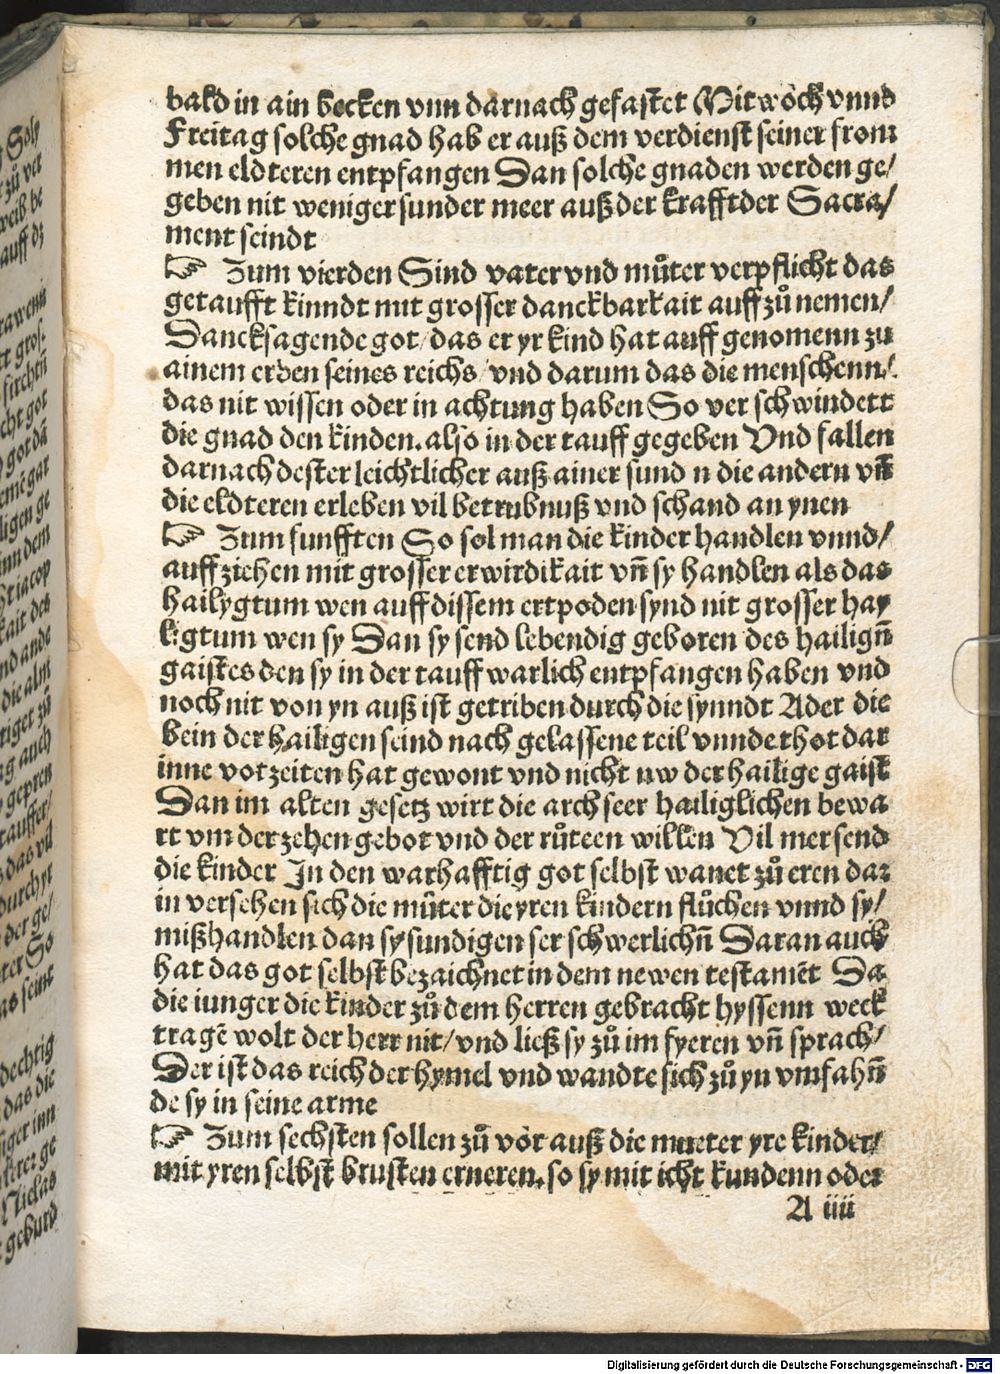 bald in ain becken vnn darnach gefastet Mitwöch vnnd
Freitag solche gnad hab er auß dem verdienst seiner from
men eldteren entpfangen Dan solche gnaden werden ge/
geben nit weniger sunder meer auß der krafft der Sacra/
ment seindt
☞ Zum vierden Sind vater vnd můter verpflicht das
getaufft kinndt mit grosser danckbarkait auff zů nemen/
Dancksagende got/ das er yr kind hat auff genomenn zu
ainem erben seines reichs/ vnd darum das die menschenn/
das nit wissen oder in achtung haben So ver schwindett
die gnad den kinden. also in der tauff gegeben Vnd fallen
darnach dester leichtlicher auß ainer sund n die andern vn̄
die eldteren erleben vil betrubnuß vnd schand an ynen
☞ Zum funfften So sol man die kinder handlen vnnd/
auff ziehen mit grosser erwirdikait vn̄ sy handlen als das
hailygtum wen auff dissem ertpoden synd nit grosser hay
ligtum wen sy Dan sy send lebendig geboren des hailign̄
gaistes den sy in der tauff warlich entpfangen haben vnd
noch nit von yn auß ist getriben durch die synndt Ader die
bein der hailigen seind nach gelassene teil vnnde thot dar
inne vorzeiten hat gewont vnd nicht nw der hailige gaist
Dan im alten gesetz wirt die arch seer hailiglichen bewa
rt vm der zehen gebot vnd der růteen willen Vil mer send
die kinder In den warhafftig got selbst wanet zů eren dar
in versehen sich die můter die yren kindern flůchen vnnd sy/
mißhandlen dan sy sundigen ser schwerlichn̄ Daran auch
hat das got selbst bezaichnet in dem newen testamēt Da
die iunger die kinder zů dem herren gebracht hyssenn weck
tragē wolt der herr nit/ vnd ließ sy zů im fyeren vn̄ sprach/
Der ist das reich der hymel vnd wandte sich zů yn vmfahn̄
de sy in seine arme
☞ Zum sechsten sollen zů vor auß die mueter yre kinder/
mit yren selbst brusten erneren. so sy mit icht kundenn oder
A iiii
Digitalisierung gefördert durch die Deutsche Forschungsgemeinschaft - DFG